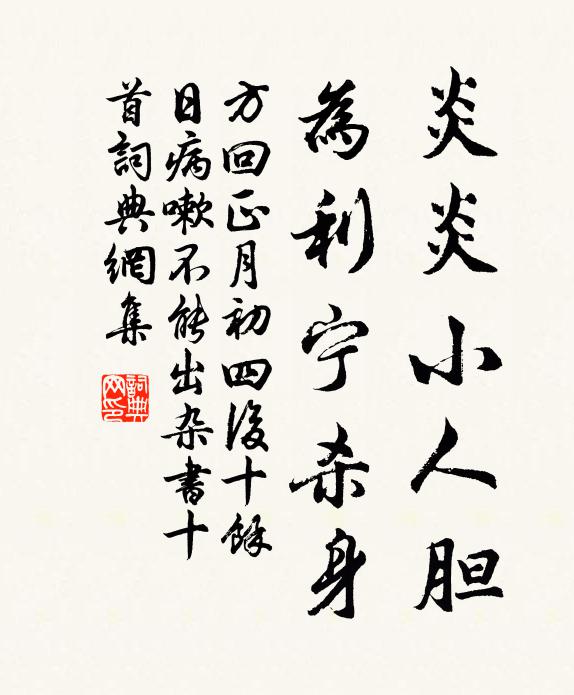 炎炎小人胆
為利宁杀身
方回正月初四後十餘
日病嗽不能出杂書十
首詞典網集
詞典
网印